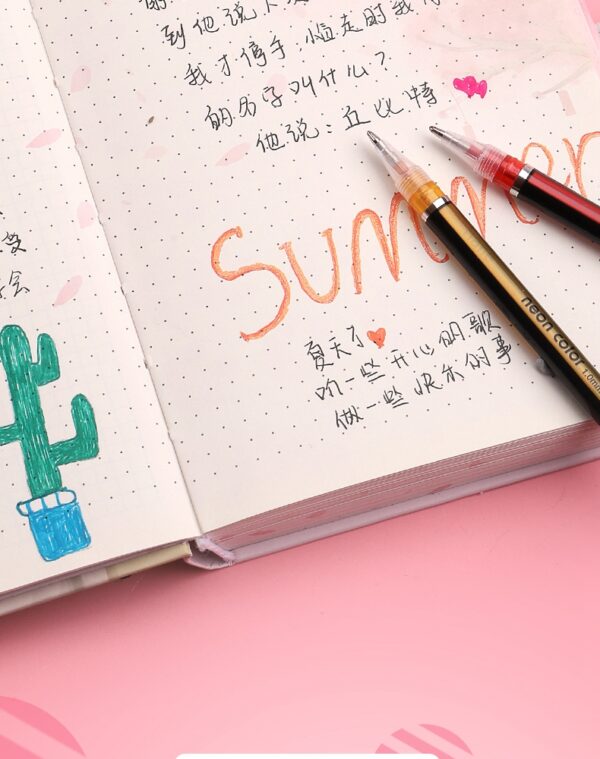 到他说
我才停手,临走时我
的名字叫什么?
他说:丘比特
Summer
夏天了
听一些开心的歌
做一些快乐的事
受
会
neon color 1.0mm